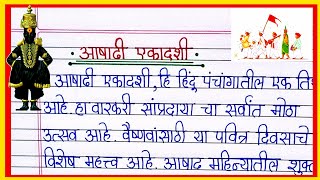 आषाढी एकादशी
आषाढी एकादशी, हि हिंदू पंचागातील एक
आहे. हा वारकरी सांप्रदाया चा सर्वांत मोठा
उत्सव आहे. वैष्णवांसाठी या पवित्र दिवसाचे
विशेष महत्त्व आहे. आषाढ महिन्यातील